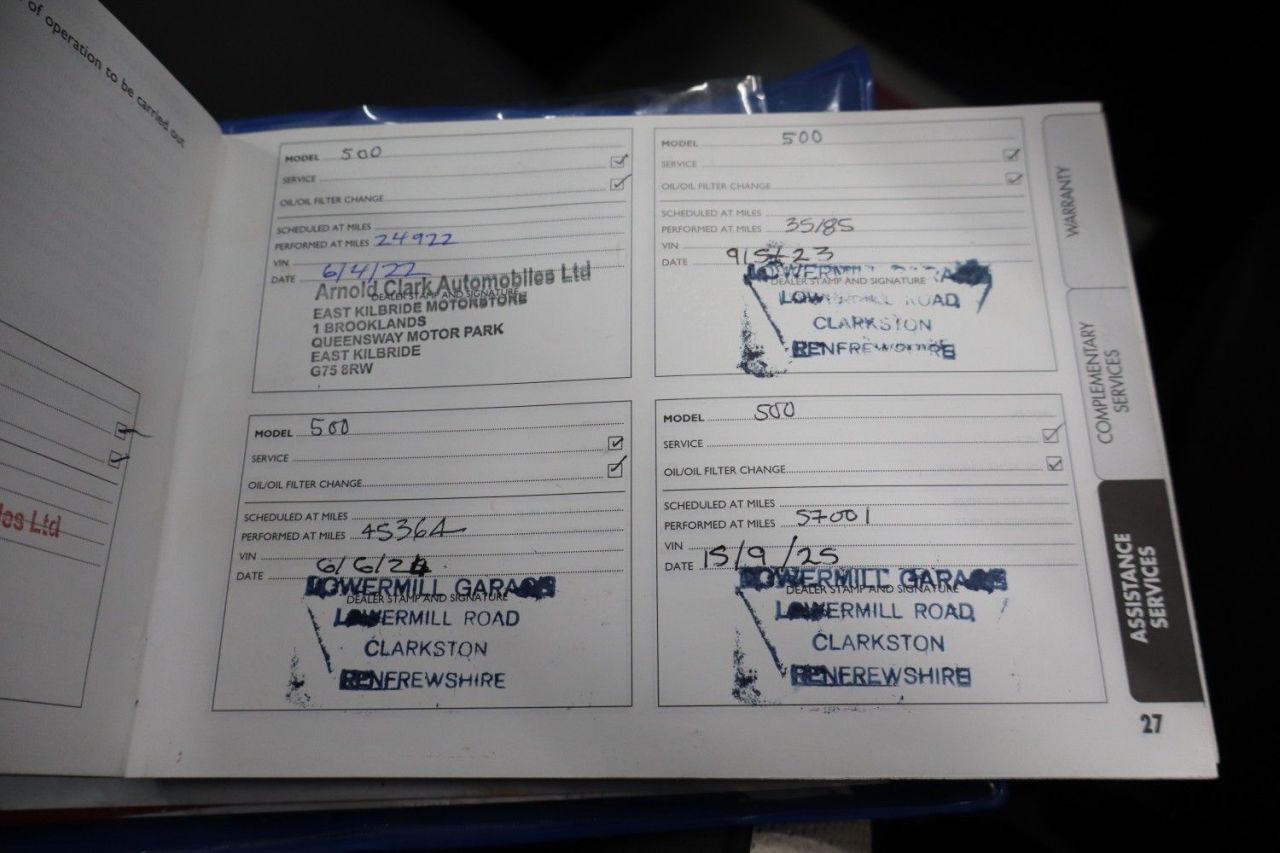 of operation to be carried out.
les Ltd
MODEL 500
SERVICE
OIL/OIL FILTER CHANGE
SCHEDULED AT MILES
PERFORMED AT MILES 24922
VIN
DATE 6/4/22
Arnold Clark Automobiles Ltd
DEALER STAMP AND SIGNATURE
EAST KILBRIDE MOTORSTORE
1 BROOKLANDS
QUEENSWAY MOTOR PARK
EAST KILBRIDE
G75 8RW
MODEL 500
SERVICE
OIL/OIL FILTER CHANGE
SCHEDULED AT MILES
PERFORMED AT MILES 35185
VIN
DATE 9/5/23
LOWERMILL GARAGE
DEALER STAMP AND SIGNATURE
LOWERMILL ROAD
CLARKSTON
RENFREWSHIRE
MODEL 500
SERVICE
OIL/OIL FILTER CHANGE
SCHEDULED AT MILES
PERFORMED AT MILES 45364
VIN
DATE 6/6/24
LOWERMILL GARAGE
DEALER STAMP AND SIGNATURE
LOWERMILL ROAD
CLARKSTON
RENFREWSHIRE
MODEL 500
SERVICE
OIL/OIL FILTER CHANGE
SCHEDULED AT MILES
PERFORMED AT MILES 57001
VIN
DATE 15/9/25
LOWERMILL GARAGE
DEALER STAMP AND SIGNATURE
LOWERMILL ROAD
CLARKSTON
RENFREWSHIRE
WARRANTY
COMPLEMENTARY
SERVICES
ASSISTANCE
SERVICES
27